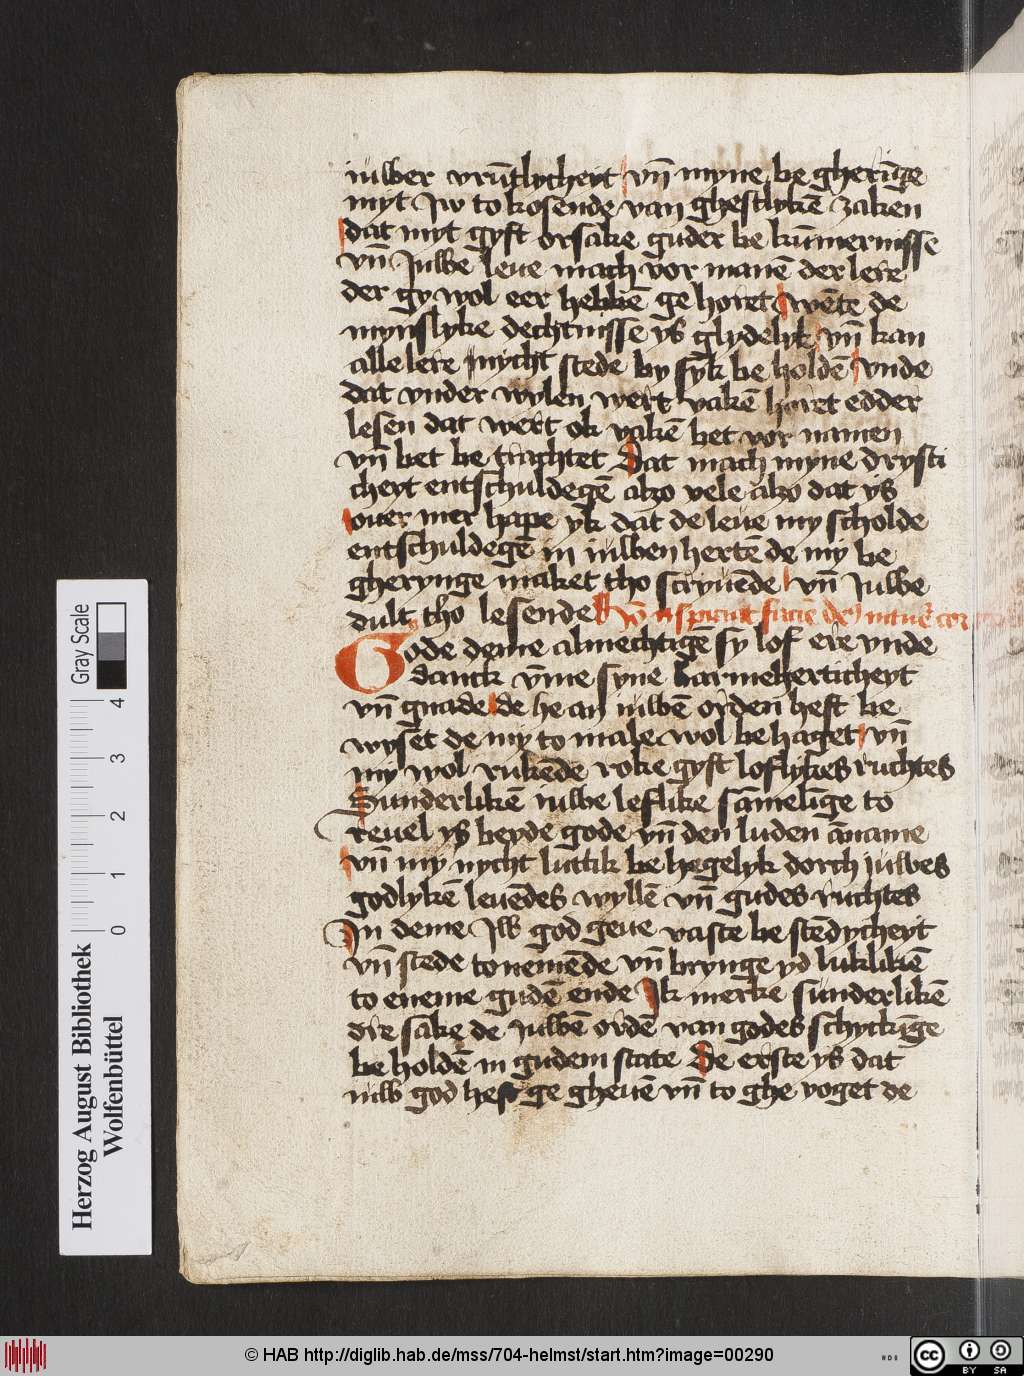 iuwer vrūtlycheyt vn̄ myne be gherīge
myt Jw to kosende van ghestlykē zaken
dat myt gyft orsake guder be kūmernisse
vn̄ Juwe leue mach vor manē der lere
der gy wol eer hebbē ge horet wēte de
mynslyke dechtnisse ys glydelyk vn̄ kan
alle lere nycht stede by syk be holdē vnde
dat vnder wylen wert vakē horet edder
lesen dat wert ok vakē bet vor namen
vn̄ bet be trachtet Dat mach myne drysti
cheyt entschuldegē alzo vele alzo dat ys
ouer mer hape yk dat de leue my scholde
entschuldegē in iuwen hertē de my be
gherynge maket tho scryuēde vn̄ Juwe
dult tho lesende
Gode deme almechtigē sy lof ere vnde
danck vm̄e syne barmeherticheyt
vn̄ gnade de he an iuwē orden heft be
wyset de my to male wol be haget vn̄
my wol rukēde roke gyft loflykes ruchtes
Sunderlikē iuwe leflike sāmelīge to
reuel ys beyde gode vn̄ den luden āname
vn̄ my nycht luttik be hegelyk dorch iuwes
godlykē leuēdes wyllē vn̄ gudes ruchtes
Jn deme Jw god geue vaste be stēdycheyt
vn̄ stede to nemēde vn̄ brynge yd luklikē
to eneme gudē ende Jk merke sunderlikē
dre sake de Juwē ordē van godes schyckīge
be holdē in gudem state De erste ys dat
iuw god heft ge gheuē vn̄ to ghe voget de
Herzog August Bibliothek
Wolfenbüttel
Gray Scale
0 1 2 3 4
© HAB http://diglib.hab.de/mss/704-helmst/start.htm?image=00290
HAB
cc BY SA